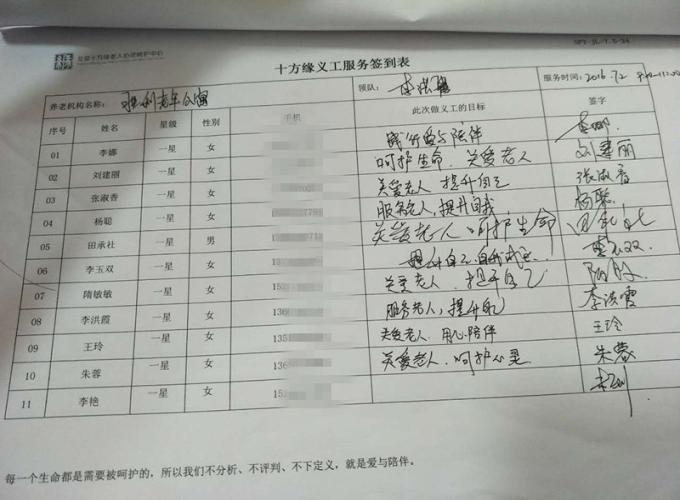 北京十方缘老人心灵呵护中心
十方缘义工服务签到表
养老机构名称： 老年公寓 领队：李洪霞 服务时间：2016.7.2
序号 姓名 星级 性别 手机 此次做义工的目标 签字
01 李娜 一星 女 践行爱与陪伴 李娜
02 刘建丽 一星 女 呵护生命.关爱老人 刘建丽
03 张淑香 一星 女 关爱老人 提升自己 张淑香
04 杨聪 一星 女 服务老人,提升自我 杨聪
05 田承社 一星 男 关爱老人 呵护生命 田承社
06 李玉双 一星 女 提升自己 李玉双
07 隋敏敏 一星 女 关爱老人.提升自己 隋敏
08 李洪霞 一星 女 136 服务老人,提升自己 李洪霞
09 王玲 一星 女 135 关爱老人.用心陪伴 王玲
10 朱蓉 一星 女 136 关爱老人.呵护心灵 朱蓉
11 李艳 一星 女 15
每一个生命都是需要被呵护的，所以我们不分析、不评判、不下定义，就是爱与陪伴。